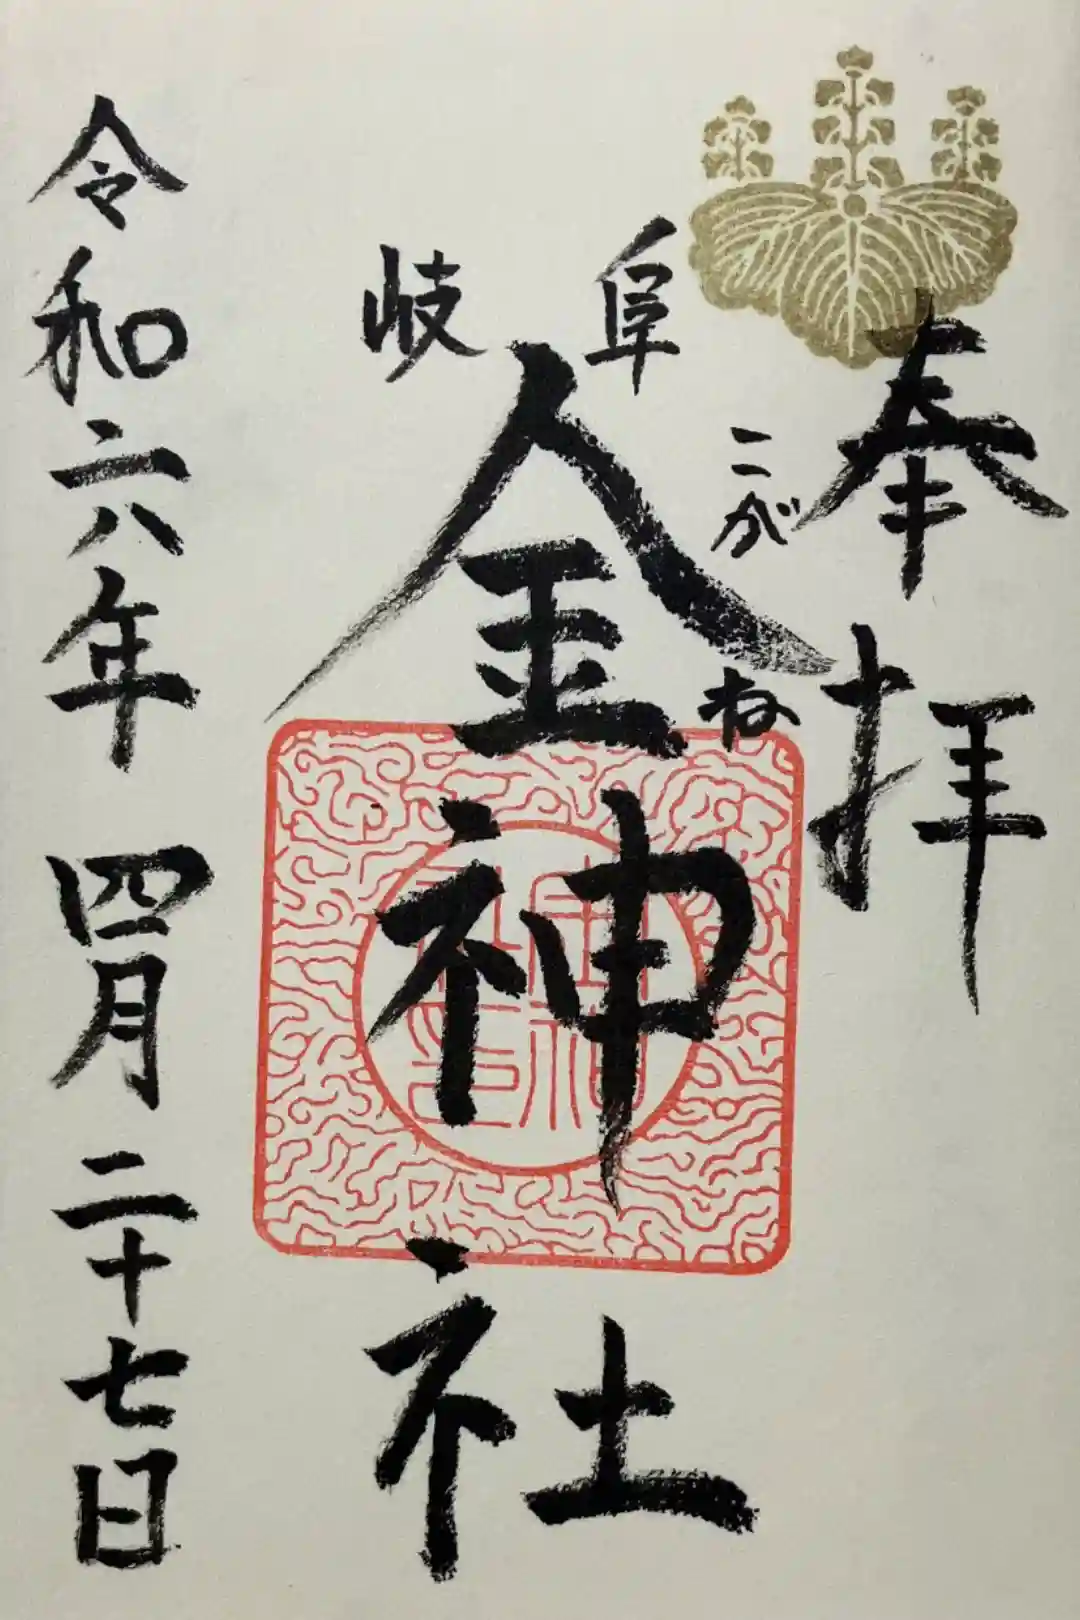 奉拝
こがね
岐阜
金神社
令和六年 四月二十七日